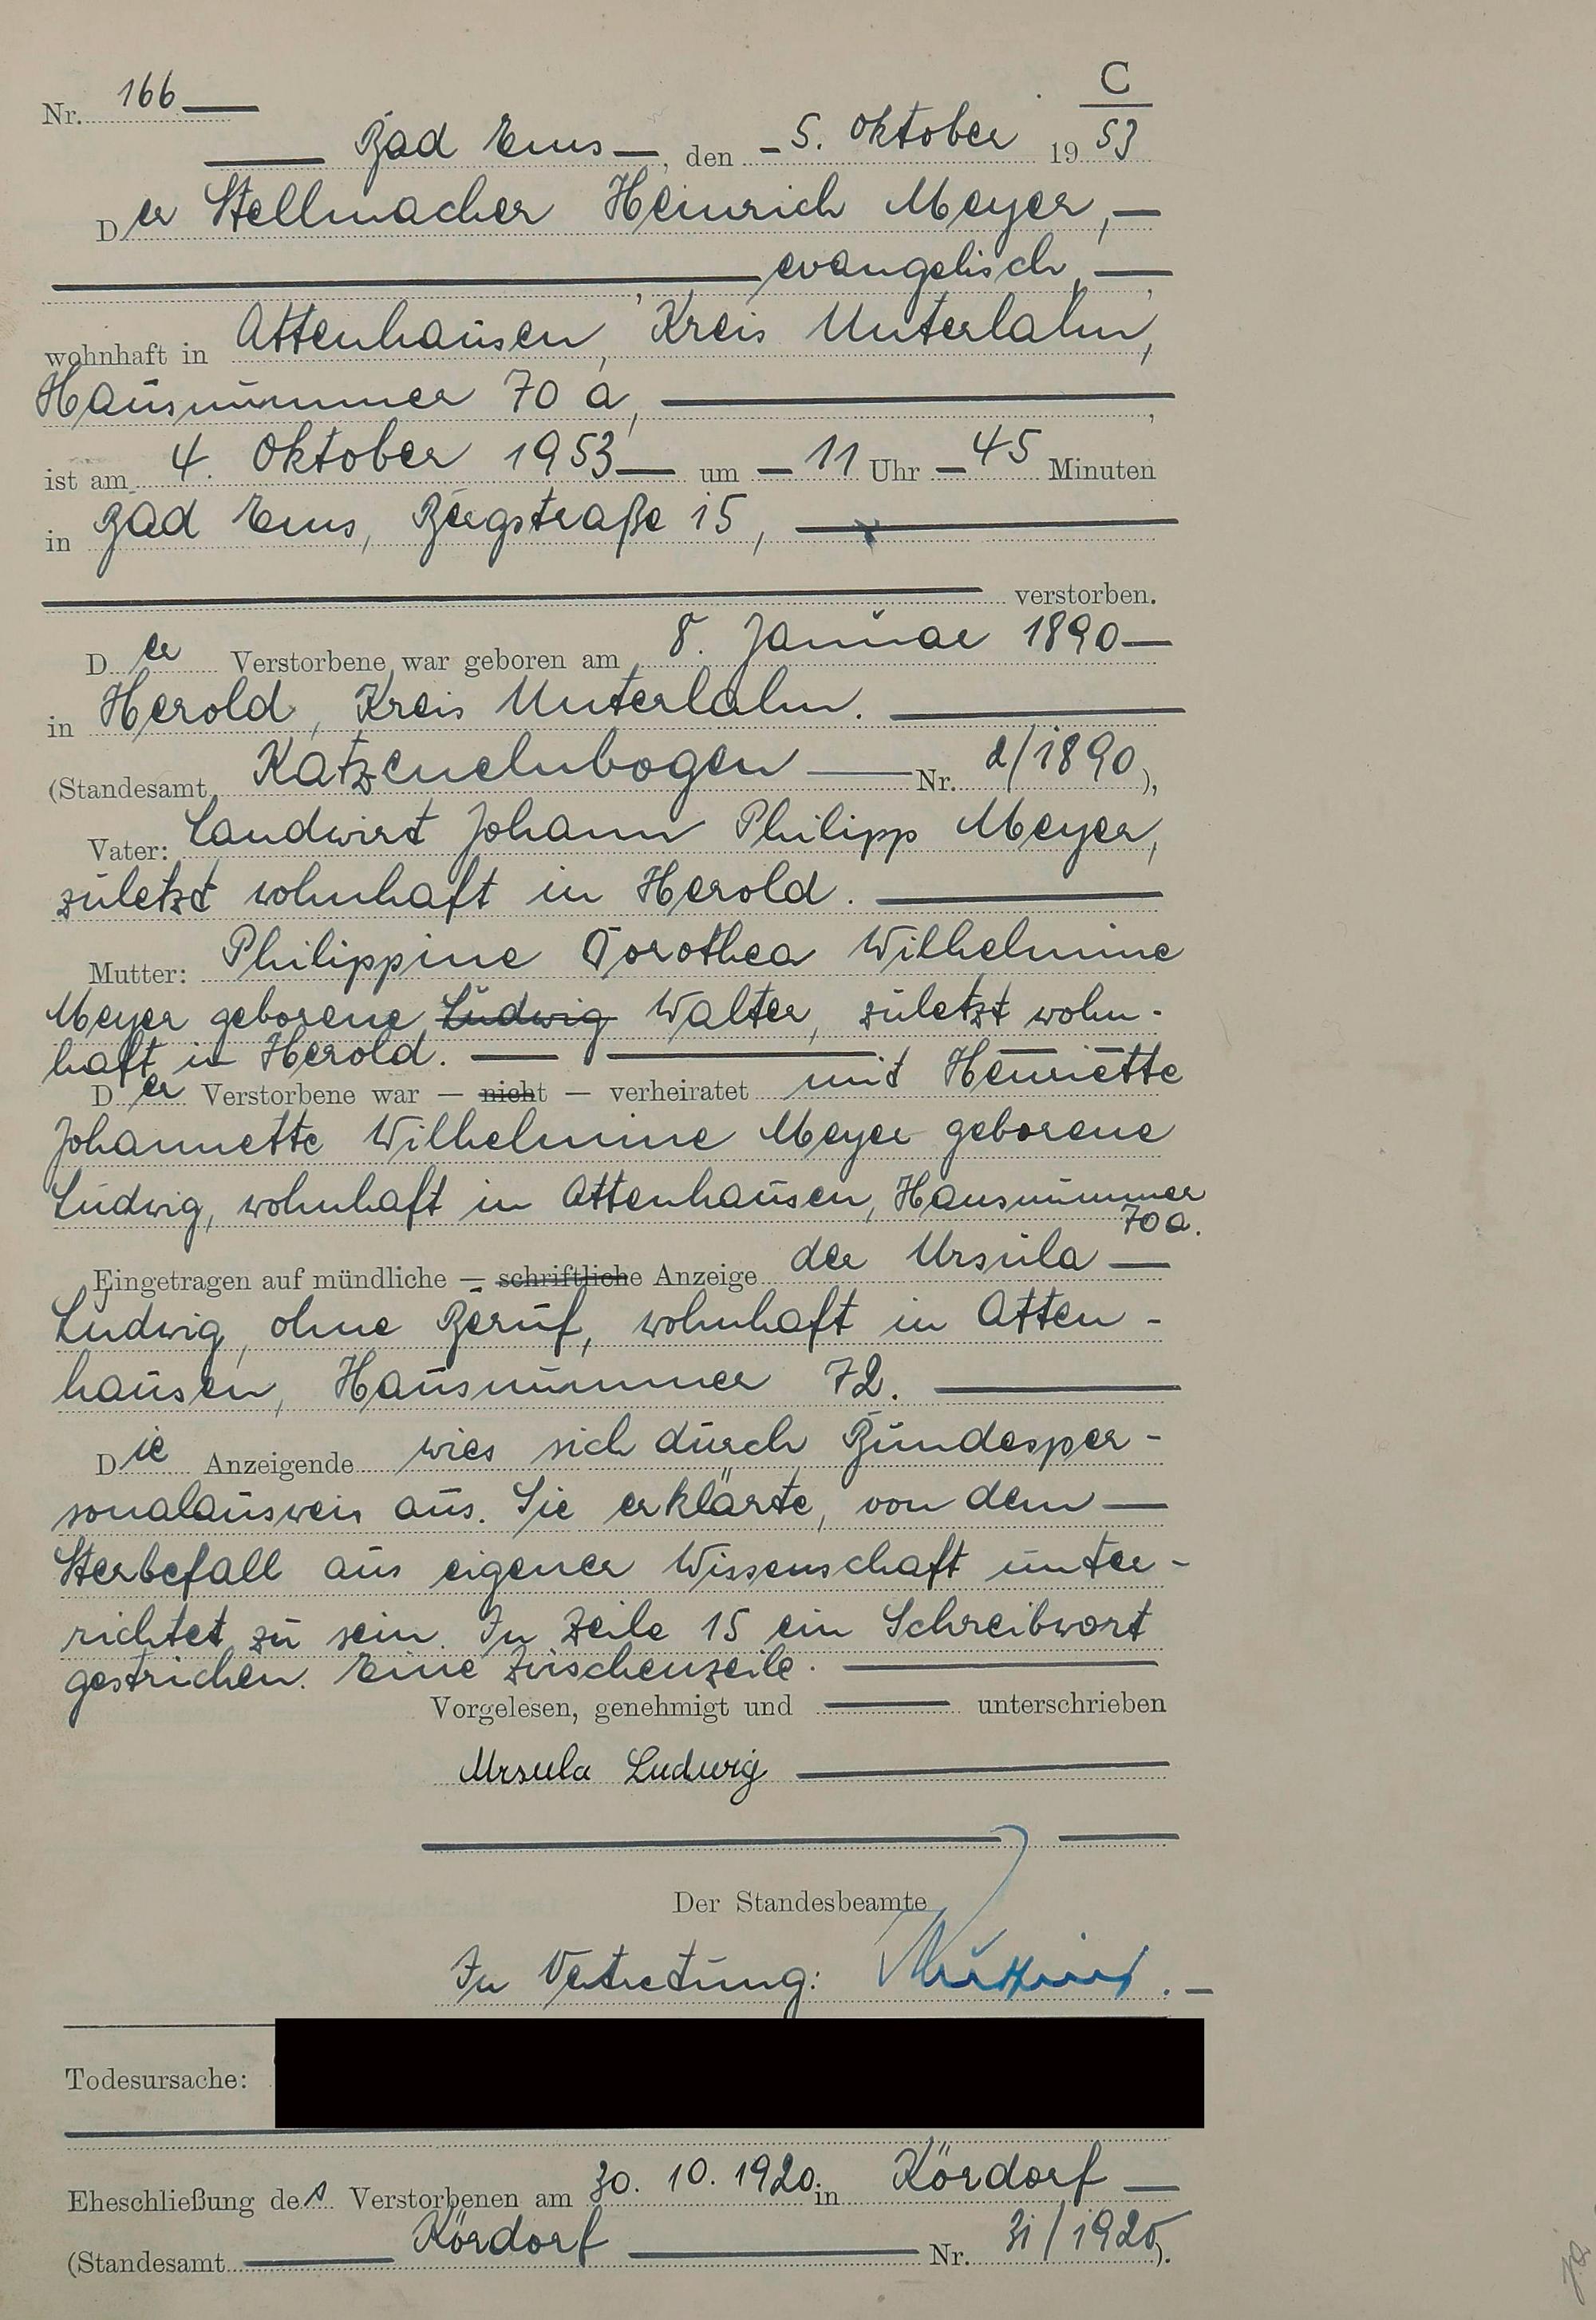 C
Nr. 166
Bad Ems, den 5. Oktober 19 53
Der Stellmacher Heinrich Meyer,
evangelisch,
wohnhaft in Attenhausen, Kreis Unterlahn,
Hausnummer 70 a,
ist am 4. Oktober 1953 um 11 Uhr 45 Minuten
in Bad Ems, Bergstraße 15,
verstorben.
Der Verstorbene war geboren am 8. Januar 1890
in Herold, Kreis Unterlahn.
(Standesamt Katzenelnbogen Nr. 2/1890),
Vater: Landwirt Johann Philipp Meyer,
zuletzt wohnhaft in Herold.
Mutter: Philippine Dorothea Wilhelmine
Meyer geborene Ludwig Walter, zuletzt wohn-
haft in Herold.
Der Verstorbene war — nicht — verheiratet mit Henriette
Johannette Wilhelmine Meyer geborene
Ludwig, wohnhaft in Attenhausen, Hausnummer
70 a.
Eingetragen auf mündliche — schriftliche Anzeige der Ursula
Ludwig, ohne Beruf, wohnhaft in Atten-
hausen, Hausnummer 72.
Die Anzeigende wies sich durch Bundesper-
sonalausweis aus. Sie erklärte, von dem
Sterbefall aus eigener Wissenschaft unter-
richtet zu sein. In Zeile 15 ein Schreibwort
gestrichen. Eine Zwischenzeile.
Vorgelesen, genehmigt und unterschrieben
Ursula Ludwig
Der Standesbeamte
In Vertretung:
Todesursache:
Eheschließung des Verstorbenen am 30. 10. 1920 in Kördorf
(Standesamt Kördorf Nr. 31/1920).